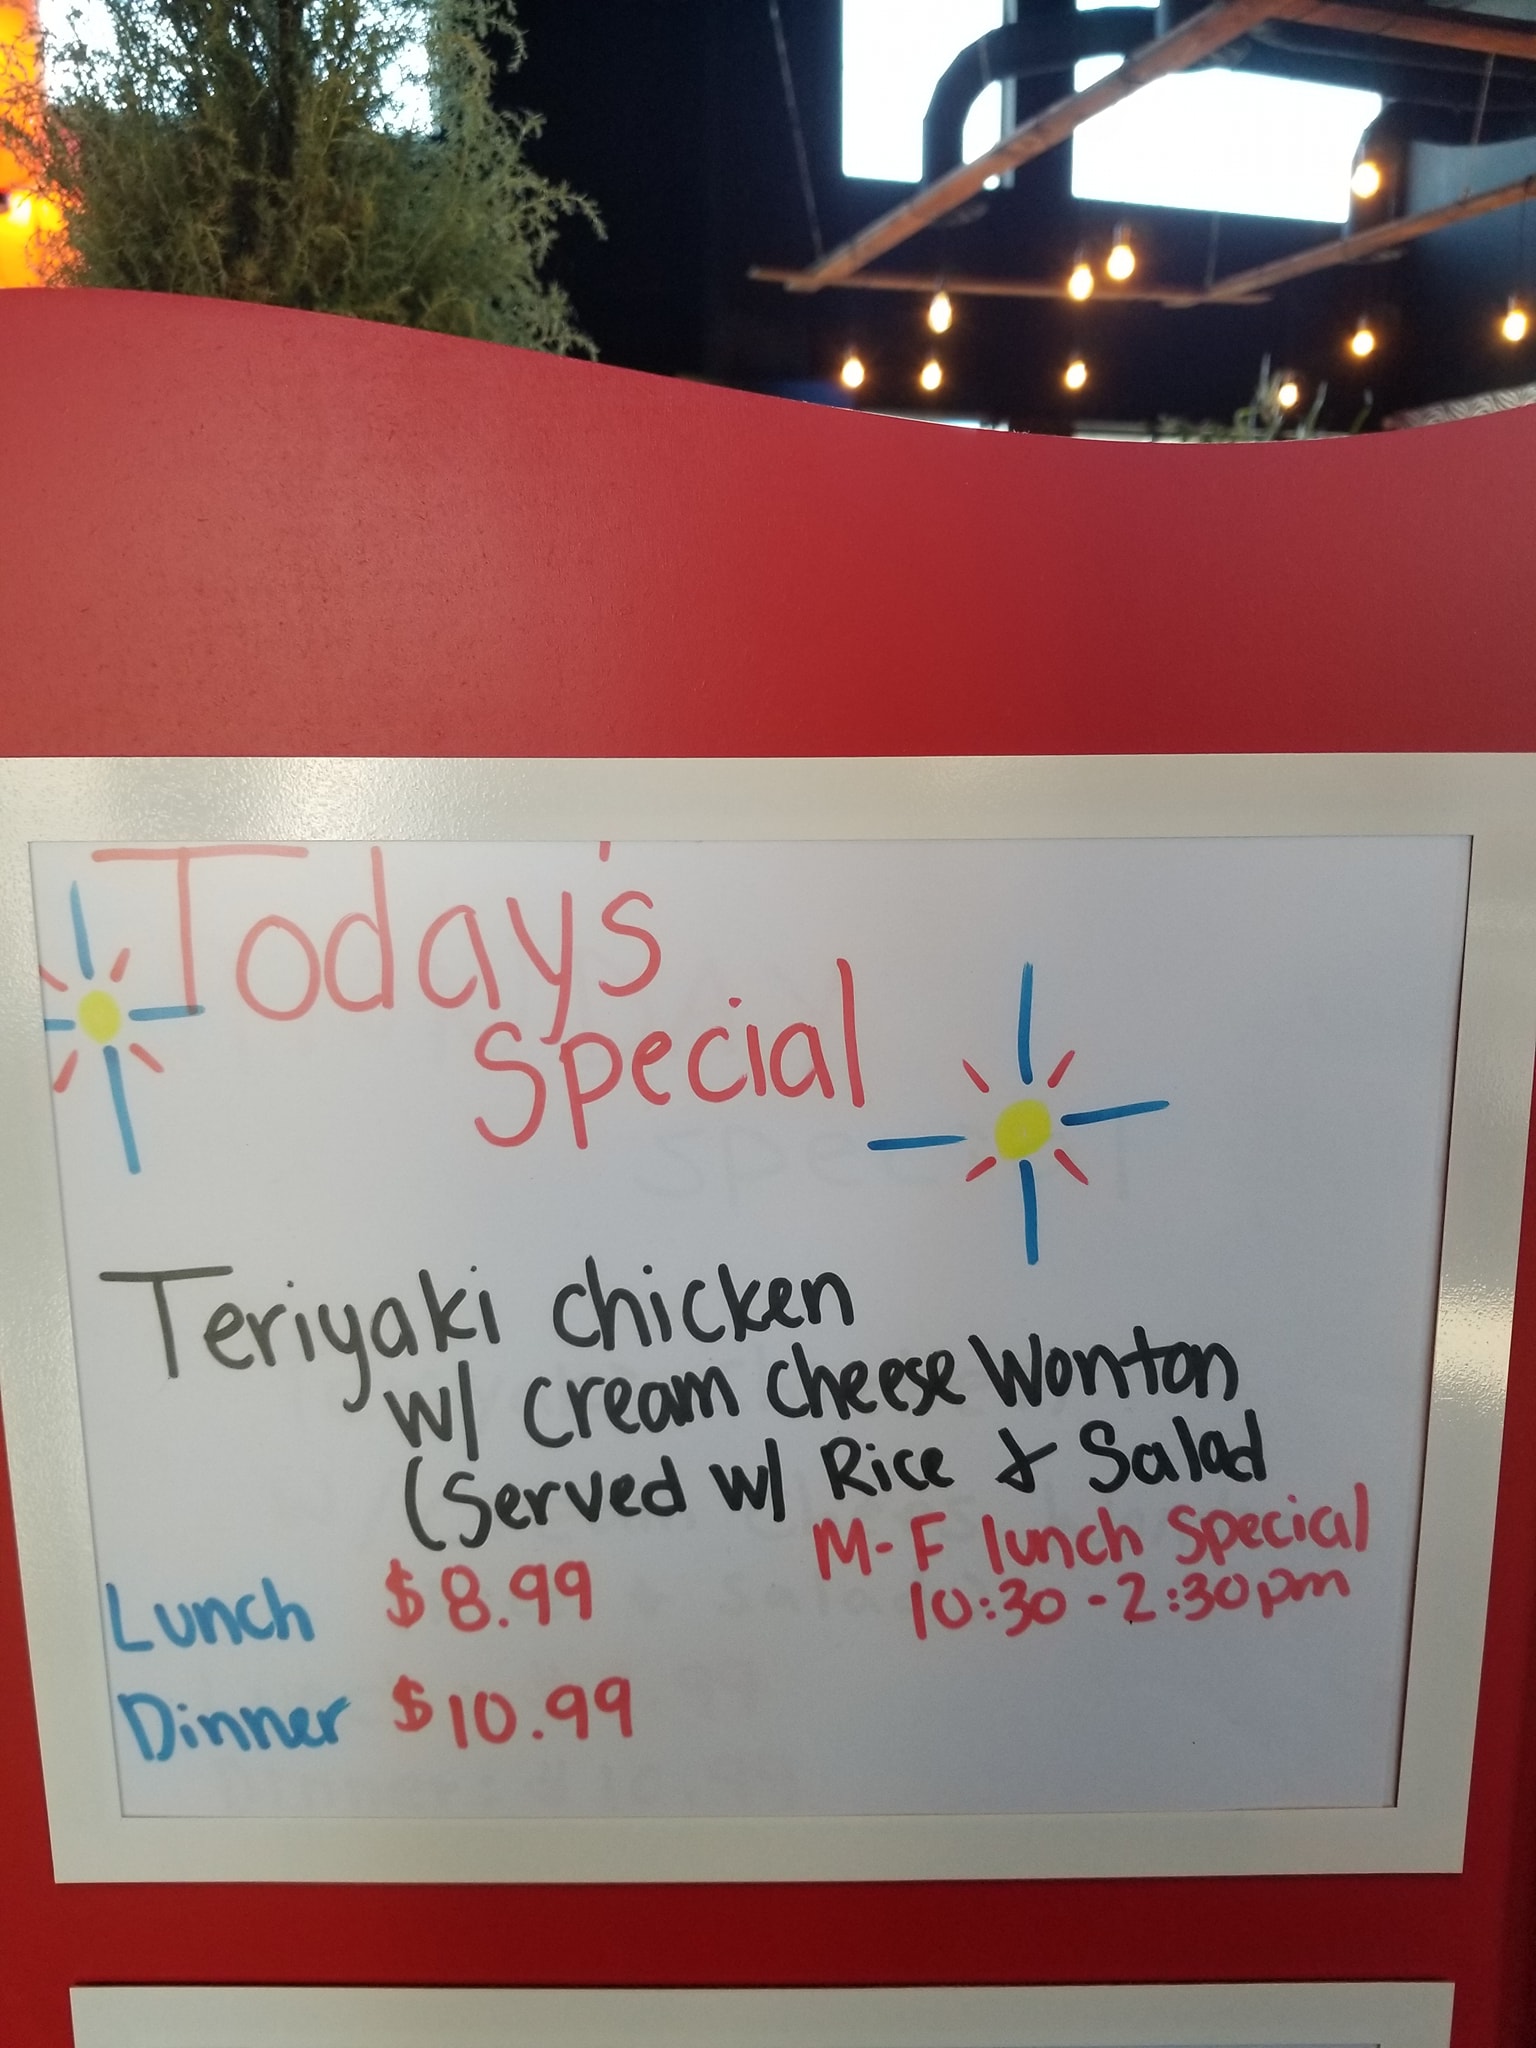 Today's
Special
Teriyaki chicken
w/ cream cheese Wonton
(Served w/ Rice & Salad
M-F lunch special
10:30-2:30pm
Lunch $8.99
Dinner $10.99